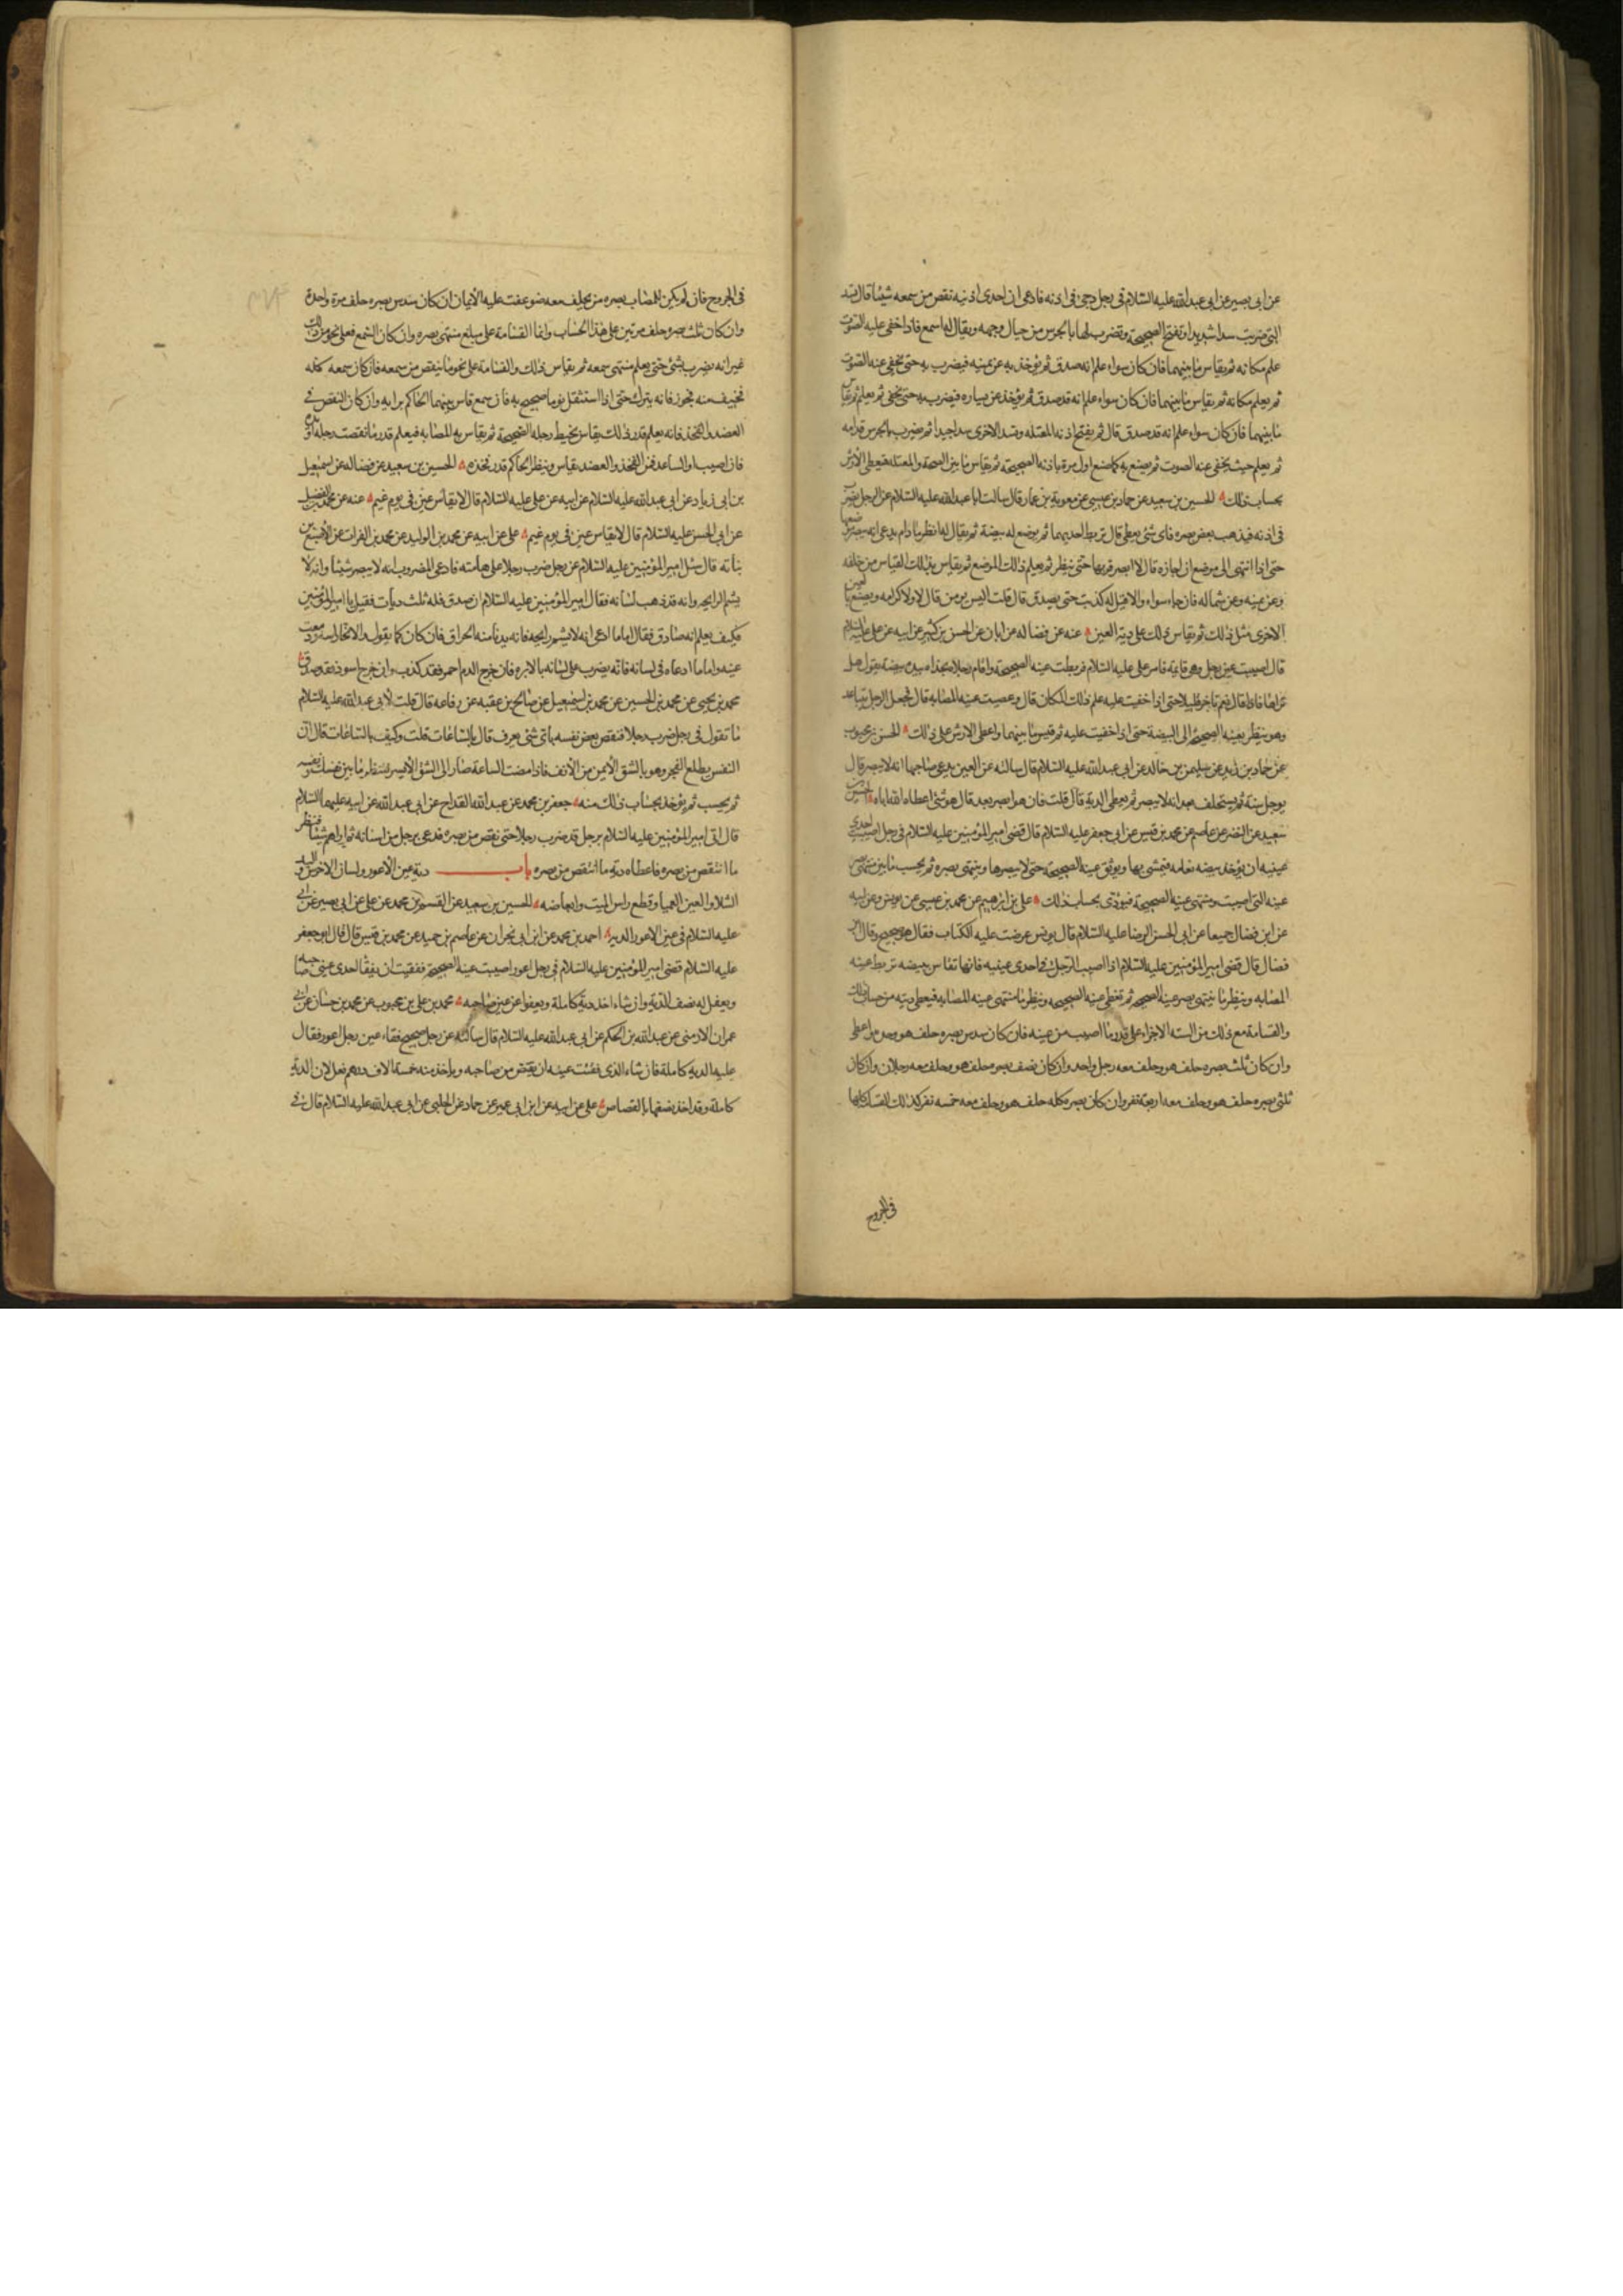 عن ابى بصير عن ابى عبد الله عليه السلام فى رجل وجئ فى اذنه فادعى ان احدى اذنيه نقص من سمعه شيئا قال تسد
التى ضربت سدا شديدا وتفتح الصحيحة وتضرب لها بالجرس من حيال وجهه ويقال له اسمع فاذا خفى عليه الصوت
علم مكانه ثم يقاس ما بينهما فان كان سواء علم انه صدق ثم يؤخذ به عن يمينه فيضرب به حتى يخفى عنه الصوت
ثم يعلم مكانه ثم يقاس ما بينهما فان كان سواء علم انه قد صدق ثم يؤخذ عن يساره فيضرب به حتى يخفى ثم يعلم ثم يقاس
ما بينهما فان كان سواء علم انه قد صدق قال ثم يفتح اذنه المعتله وتسد الاخرى سدا جيدا ثم يضرب بالجرس قدامه
ثم يعلم حيث يخفى عنه الصوت ثم يصنع به كما صنع اول مرة باذنه الصحيحة ثم يقاس ما بين الصحة والمعتله فيعطى الارش
بحساب ذلك الحسين بن سعيد عن حماد بن عيسى عن معوية بن عمار قال سالت ابا عبد الله عليه السلام عن الرجل يضرب
فى اذنه فيذهب بعض بصره فاى شئ يعطى قال تربط احديهما ثم يوضع له بيضة ثم يقال له انظر ما دام يدعى انه يبصر موضعها
حتى اذا انتهى الى موضع ان جازه قال لا ابصر قربها حتى ينظر ثم يعلم ذلك الموضع ثم يقاس بذلك القياس من خلفه
وعن يمينه وعن شماله فان جاء سواء والا قيل له كذبت حتى يصدق قال قلت اليس يومن قال لا ولا كرامه ويصنع بالعين
الاخرى مثل ذلك ثم يقاس ذلك على دية العين عنه عن فضاله عن ابان عن الحسن بن كثير عن ابيه عن على عليه السلام
قال اصيبت عين رجل وهى قايمه فامر على عليه السلام فربطت عينه الصحيحة واقام رجلا بحذاه بيده بيضة يقول هل
تراها فاذا قال نعم تاخر قليلا حتى اذا خفيت عليه علم ذلك المكان قال وعصبت عينه المصابه قال فجعل الرجل يتباعد
وهو ينظر بعينه الصحيحة الى البيضة حتى اذا خفيت عليه ثم قيس ما بينهما واعطى الارش على ذلك الحسن بن محبوب
عن حماد بن زيد عن سليمن بن خالد عن ابى عبد الله عليه السلام قال سالته عن العين يدعى صاحبها انه لا يبصر قال
يوجل سنة ثم يستحلف بعد انه لا يبصر ثم يعطى الدية قال قلت فان هو ابصر بعد قال هو شئ اعطاه الله اياه الحسين بن
سعيد عن النضر عن عاصم عن محمد بن قيس عن ابى جعفر عليه السلام قال قضى امير المؤمنين عليه السلام فى رجل اصيبت احدى
عينيه ان يؤخذ بيضه نعامه فيمشى بها ويوثق عينه الصحيحة حتى لا يبصرها وينتهى بصره ثم يحسب ما بين منتهى بصر
عينه التى اصيبت ومنتهى عينه الصحيحة فيؤدى بحساب ذلك على بن ابراهيم عن محمد بن عيسى عن يونس وعن ابيه
عن ابن فضال جميعا عن ابى الحسن الرضا عليه السلام قال يونس عرضت عليه الكتاب فقال هو صحيح وقال ابن
فضال قال قضى امير المؤمنين عليه السلام اذا اصيب الرجل فى احدى عينيه فانها تقاس ببيضه تربط عينه
المصابه وينظر ما ينتهى بصر عينه الصحيحه ثم تغطى عينه الصحيحه وينظر ما منتهى عينه المصابه فيعطى ديته من حساب ذلك
والقسامة مع ذلك من السته الاجزاء على قدر ما اصيب من عينه فان كان سدس بصره حلف هو وحده واعطى
وان كان ثلث بصره حلف هو وحلف معه رجل واحد وان كان نصف بصره حلف هو وحلف معه رجلان وان كان
ثلثى بصره حلف هو وحلف معه اربعة نفر وان كان بصره كله حلف هو وحلف معه خمسه نفر كذلك القسامة كلها
فى الجروح
فى الجروح فان لم يكن للمصاب بصره من يحلف معه ضوعفت عليه الايمان ان كان سدس بصره حلف مرة واحدة
وان كان ثلث بصره حلف مرتين على هذا الحساب وانما القسامة على مبلغ منتهى بصره وان كان السمع فعلى نحو من ذلك
غير انه يضرب بشئ حتى يعلم منتهى سمعه ثم يقاس ذلك والقسامة على نحو ما ينقص من سمعه فان كان سمعه كله
فخيف منه فجور فانه يترك حتى اذا استثقل نوما صيح به فان سمع قاس بينهما الحاكم برايه وان كان النقص فى
العضد والفخذ فانه يعلم قدر ذلك يقاس بخيط رجله الصحيحة ثم يقاس به المصابه فيعلم قدر ما نقصت رجله او يده
فان اصيب او الساعد فمن الفخذ والعضد يقاس وينظر الحاكم قدر فخذه الحسين بن سعيد عن فضاله عن اسمعيل
بن ابى زياد عن ابى عبد الله عليه السلام عن ابيه عن على عليه السلام قال لا يقاس عين فى يوم غيم عنه عن محمد بن الفضيل
عن ابى الحسن عليه السلام قال لا يقاس عين فى يوم غيم على عن ابيه عن محمد بن الوليد عن محمد بن الفرات عن الاصبغ بن
نباته قال سئل امير المؤمنين عليه السلام عن رجل ضرب رجلا على هامته فادعى المضروب انه لا يبصر شيئا وانه لا
يشم الرايحه وانه قد ذهب لسانه فقال امير المؤمنين عليه السلام ان صدق فله ثلث ديات فقيل يا امير المؤمنين
فكيف يعلم انه صادق فقال اما ما ادعى انه لا يشم رايحه فانه يدنا منه الحراق فان كان كما يقول والا نحا راسه ودمعت
عينه واما ما ادعاه فى لسانه فانه يضرب على لسانه بالابره فان خرج الدم احمر فقد كذب وان خرج اسود فقد صدق
محمد بن يحيى عن محمد بن الحسين عن محمد بن اسمعيل عن صالح بن عقبه عن رفاعه قال قلت لابى عبد الله عليه السلام
ما تقول فى رجل ضرب رجلا فنقص بعض نفسه باى شئ يعرف قال بالساعات قلت وكيف بالساعات قال ان
النفس يطلع الفجر وهو بالشق الايمن من الانف فاذا مضت الساعة صار الى الشق الايسر فتنظر ما بين نفسك ونفسه
ثم يحسب ثم يؤخذ بحساب ذلك منه جعفر بن محمد عن عبد الله القداح عن ابى عبد الله عن ابيه عليهما السلام
قال اتى امير المؤمنين عليه السلام برجل قد ضرب رجلا حتى نقص من بصره فدعى برجل من اسنانه ثم اراهم شيئا فنظر
ما انتقص من بصره فاعطاه دية ما انتقص من بصره باب دية عين الاعور ولسان الاخرس واليد
الشلا والعين العميا وقطع راس الميت وابعاضه الحسين بن سعيد عن القسم بن محمد عن على عن ابى بصير عن ابى
عليه السلام فى عين الاعور الدية احمد بن محمد عن ابن ابى نجران عن عاصم بن حميد عن محمد بن قيس قال قال ابو جعفر
عليه السلام قضى امير المؤمنين عليه السلام فى رجل اعور اصيبت عينه الصحيحة ففقيت ان يفقأ احدى عينى صاحبه
ويعقل له نصف الدية وان شاء اخذ دية كاملة ويعفوا عن عين صاحبه محمد بن على بن محبوب عن محمد بن حسان عن ابى
عمران الارمنى عن عبد الله بن الحكم عن ابى عبد الله عليه السلام قال سالته عن رجل صحيح فقاء عين رجل اعور فقال
عليه الدية كاملة فان شاء الذى فقئت عينه ان يقتص من صاحبه وياخذ منه خمسة الاف درهم فعل لان الدية
كاملة وقد اخذ نصفها بالقصاص على عن ابيه عن ابن ابى عمير عن حماد عن الحلبى عن ابى عبد الله عليه السلام قال فى